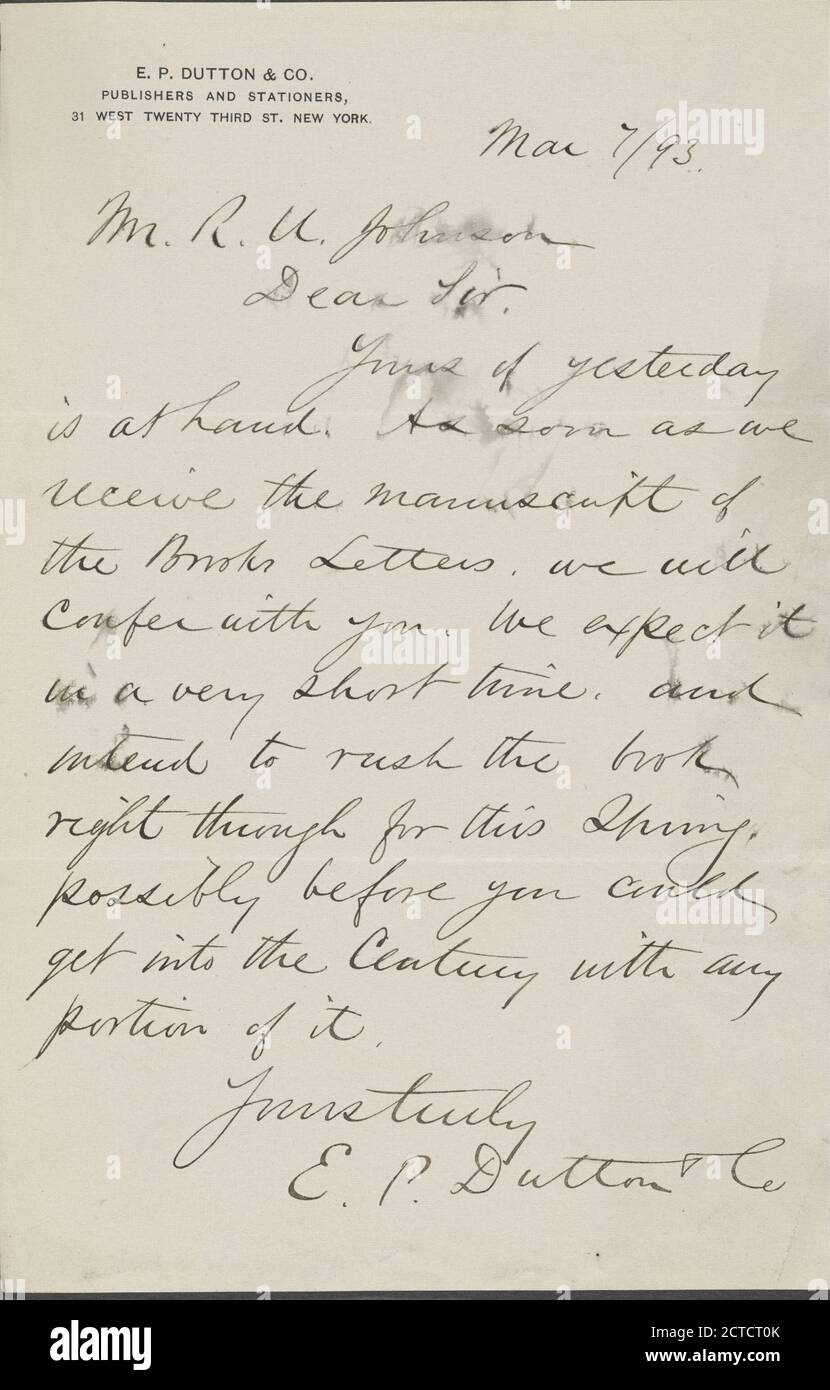 E. P. DUTTON & CO.
PUBLISHERS AND STATIONERS,
31 WEST TWENTY THIRD ST. NEW YORK.
Mar 7/93.
Mr. R. U. Johnson
Dear Sir.
Yours of yesterday
is at hand. As soon as we
receive the manuscript of
the Brooks Letters. we will
confer with you. We expect it
in a very short time. and
intend to rush the book
right through for this Spring.
possibly before you could
get into the Century with any
portion of it.
Yours truly
E. P. Dutton & Co
alamy
alamy
alamy
alamy
alamy
Image ID: 2CTCT0K
www.alamy.com